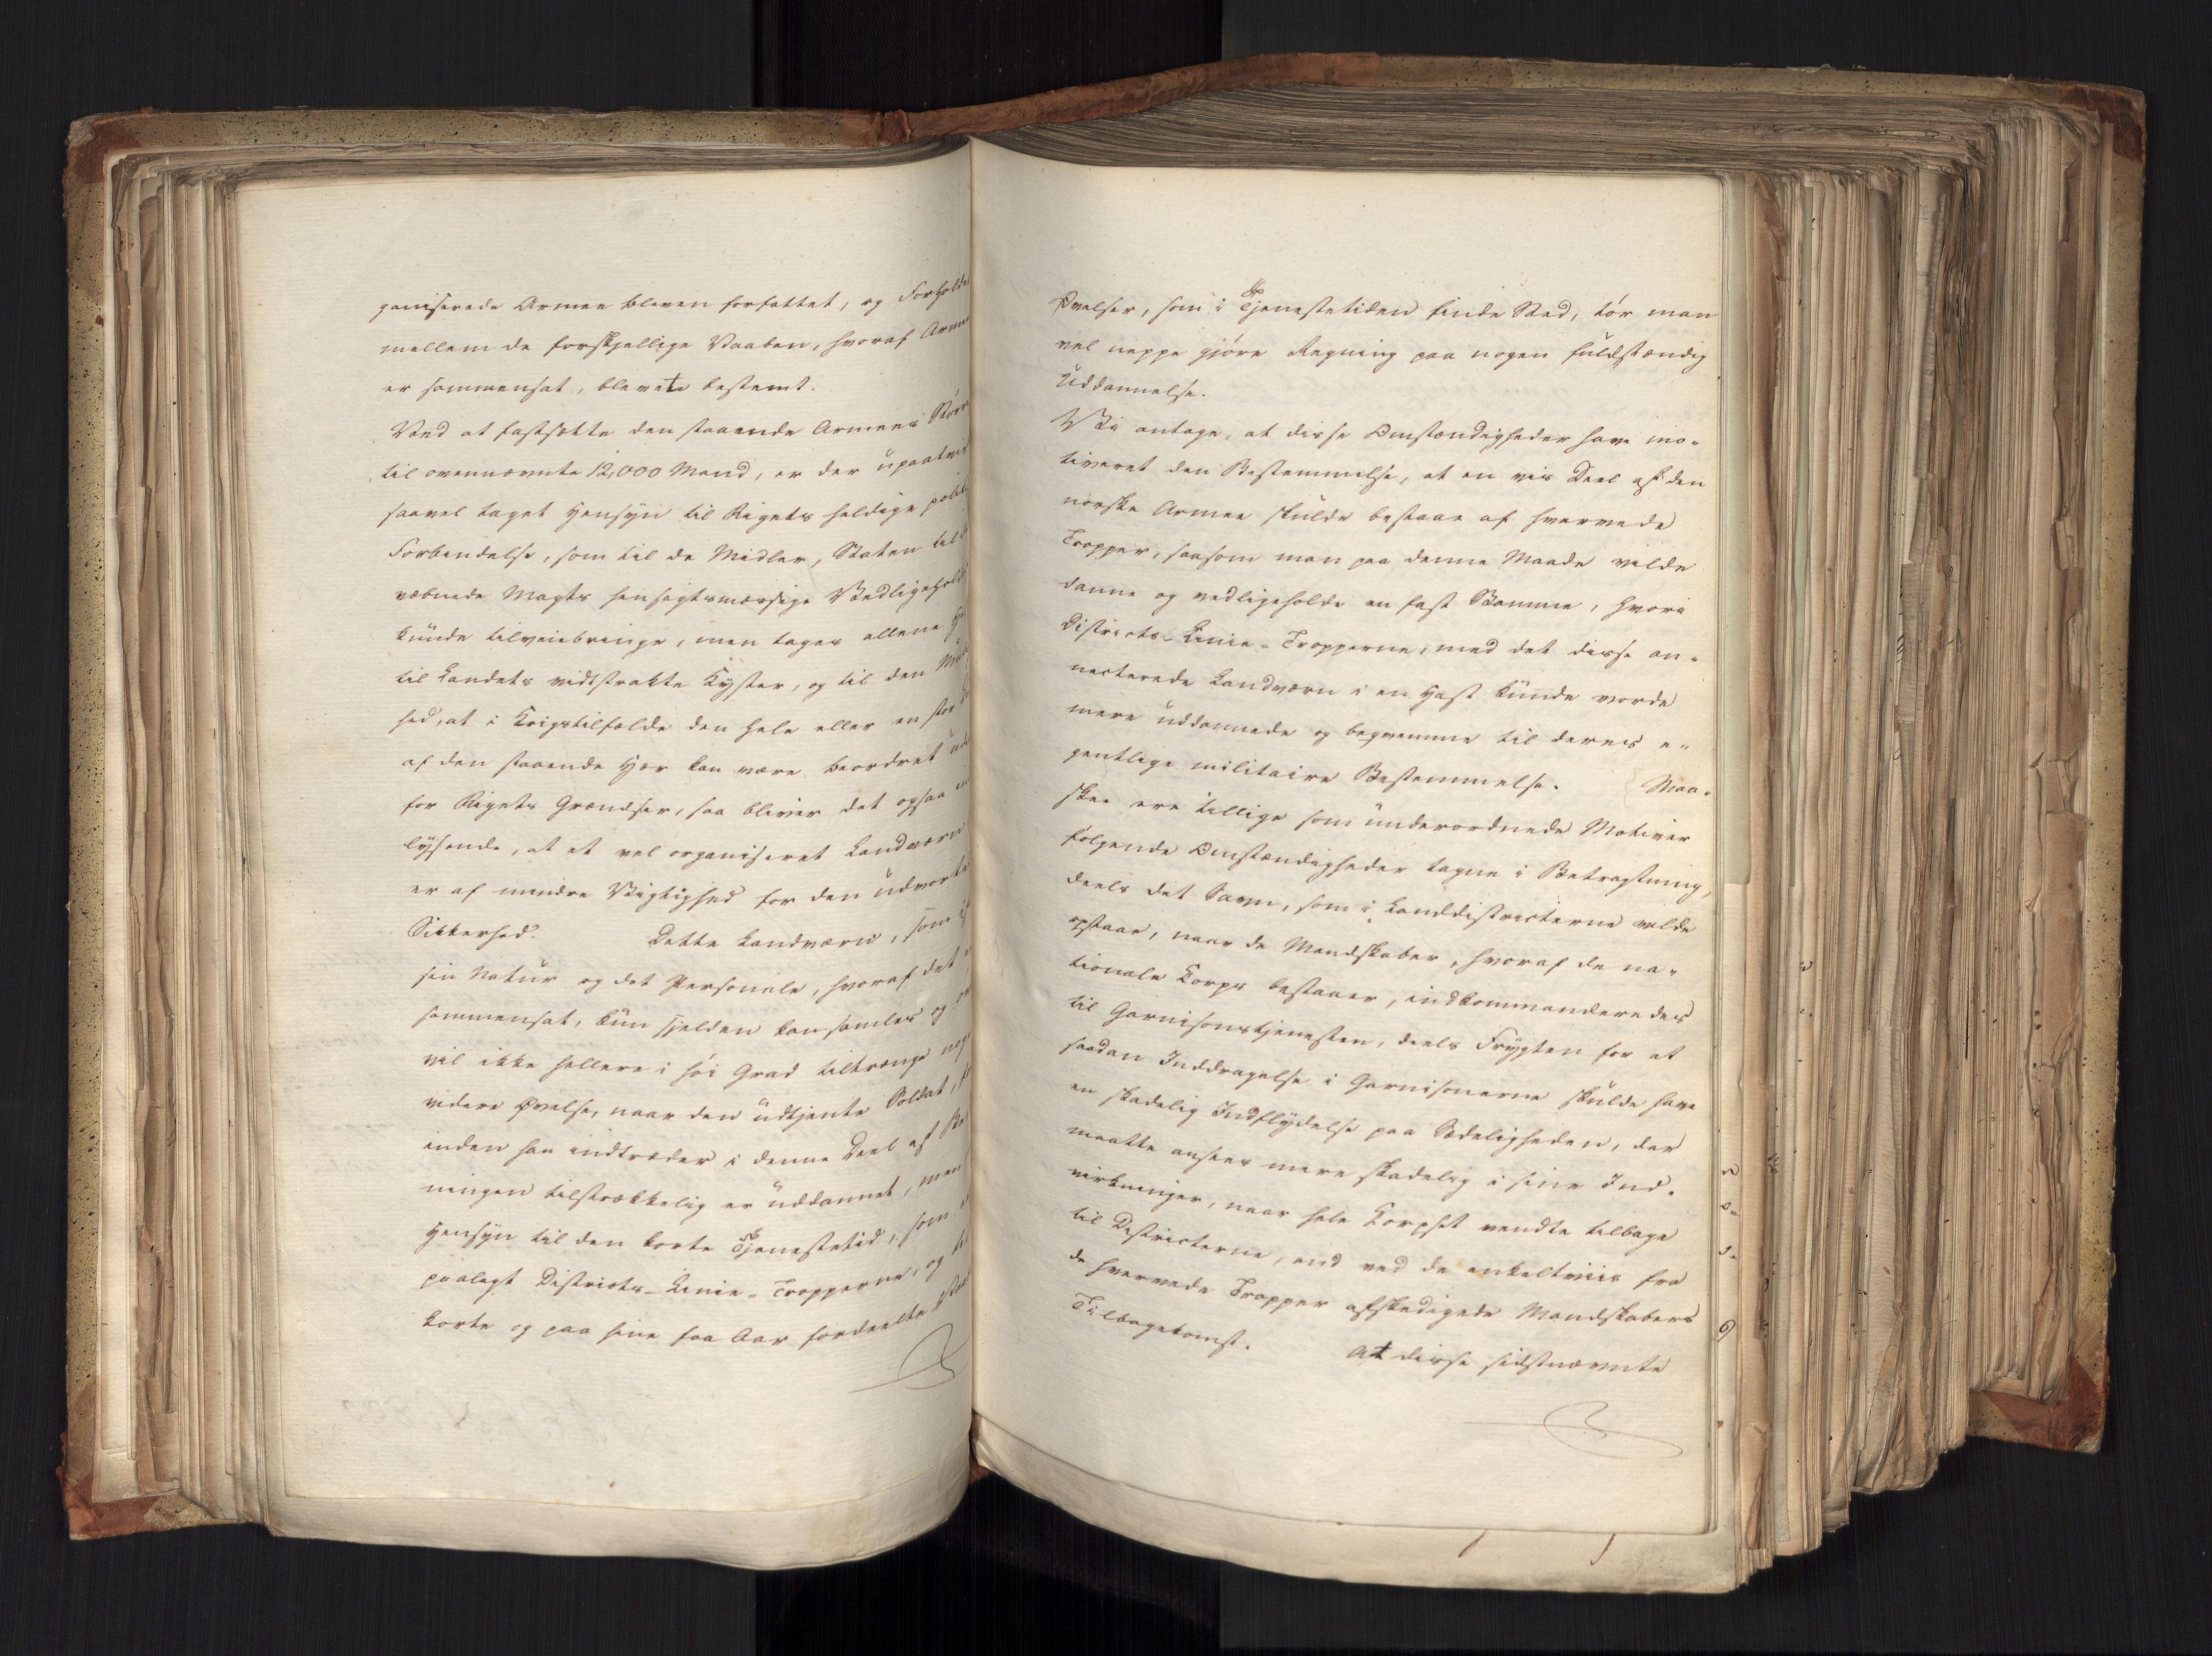 ganiserede Armee bleven forfattet, og Forhold
mellem de forskjellige Vaaben, hvoraf Arme
er sammensat, blevete bestemt.
Ved at fastsætte den staaende Armees Størr
til ovennævnte 12,000 Mand, er der upaatvi
saavel taget Hensyn til Rigets heldige polit
Forbindelse, som til de Midler, Staten til
væbnede Magts hensigtsmæssige Vedligehol
kunde tilveiebringe, men tages allene H
til Landets vidtstrakte Kyster, og til den
hed, at i Krigstilfælde den hele eller en stor
af den staaende Hær kan være beordret ud
for Rigets Grændser, saa bliver det ogsaa
lysende, at et vel organiseret Landværn
er af mindre Vigtighed for den udvorte
Sikkerhed. Dette Landværn, som
sin Natur og det Personale, hvoraf det
sammensat, kun sjelden kan samles og
vil ikke hellere i høi Grad tiltrænge nog
videre Øvelse, naar den udtjente Soldat,
inden han indtræder i denne Deel af
ningen tilstrækkelig er uddannet, men
Hensyn til den korte Tjenestetid, som
paalagt Districts-Linie-Tropperne, og
korte og paa sine faa Aar fordeelte
Øvelser, som i Tjenestetiden finde Sted, tør man
vel neppe gjøre Regning paa nogen fuldstændig
Uddannelse.
Vi antage, at disse Omstændigheder have mo-
tiveret den Bestemmelse, at en vis Deel af den
norske Armee skulde bestaae af hvervede
Tropper, saasom man paa denne Maade vilde
danne og vedligeholde en fast Stamme, hvori
Districts-Linie-Tropperne, med det disse an-
necterede Landværn i en Hast kunde vorde
mere uddannede og beqvemme til deres e-
gentlige militaire Bestemmelse. Maa-
skee ere tillige som underordnede Motiver
følgende Omstændigheder tagne i Betragtning,
deels det Savn, som i Landdistricterne vilde
opstaae, naar de Mandskaber, hvoraf de na-
tionale Corps bestaaer, indkommanderedes
til Garnisonstjenesten, deels Frygten for at
saadan Inddragelse i Garnisonerne skulde have
en skadelig Indflydelse paa Sædeligheden, der
maatte ansees mere skadelig i sine Ind-
virkninger, naar hele Corpset vendte tilbage
til Districterne, end ved de enkeltviis fra
de hvervede Tropper afskedigede Mandskabers
Tilbagekomst. At disse sidstnævnte